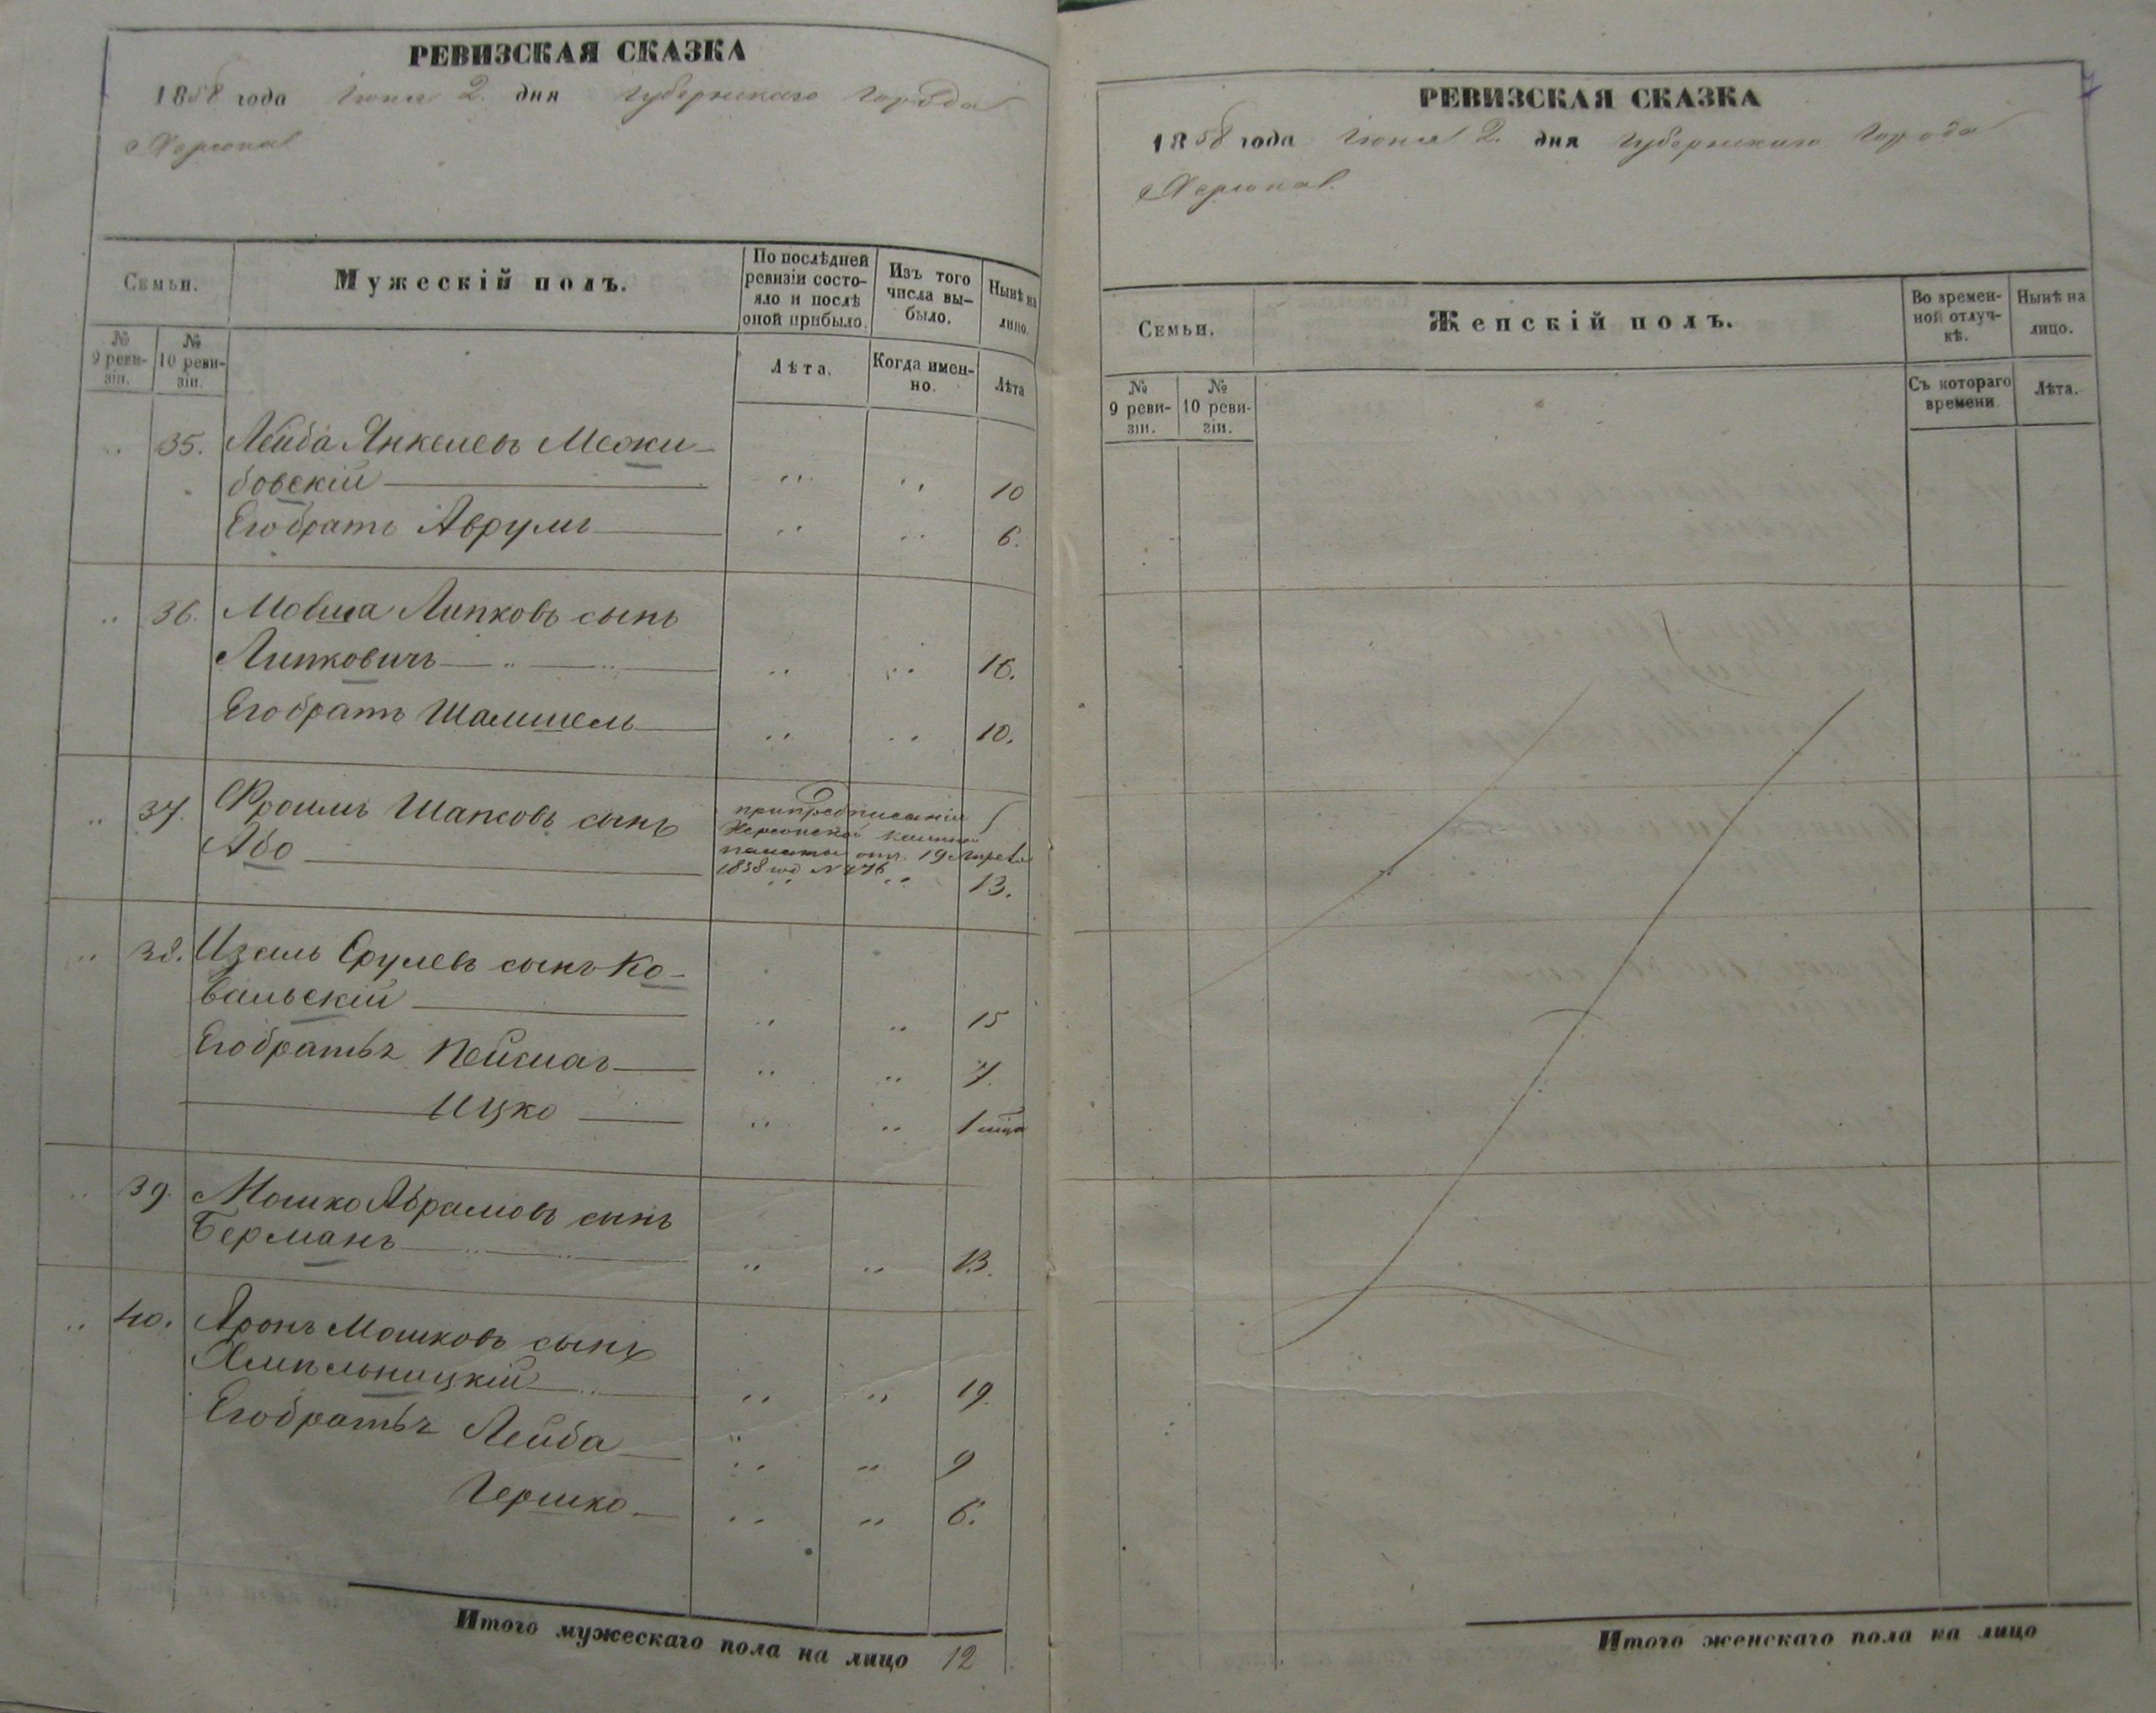 РЕВИЗСКАЯ СКАЗКА
1858 года Іюня 2. дня Губернскаго города
Херсона
Семьи.
Мужескій полъ.
По послѣдней ревизіи состояло и послѣ оной прибыло.
Изъ того числа выбыло.
Нынѣ на лицо.
№ 9 ревизіи.
№ 10 ревизіи.
Лѣта.
Когда именно.
Лѣта
„ 35. Лейба Янкелевъ Межи-
бовскій „ „ 10
Его братъ Аврумъ „ „ 6.
„ 36. Мовша Липковъ сынъ
Липковичъ „ „ 16.
Его братъ Шамшель „ „ 10.
„ 37. Фроимъ Шапсовъ сынъ
Або „ „ 13.
при предписаніи
Херсонской казенной
палаты отъ 19 Апреля
1858 год №
„ 38. Изель Срулевъ сынъ Ко-
вальскій „ „ 15
Его братья Пейсахъ „ „ 7.
Ицко „ „ 1 мѣца
„ 39. Мошко Абрамовъ сынъ
Берманъ „ „ 13.
„ 40. Аронъ Мошковъ сынъ
Хмельницкій „ „ 19.
Его братья Лейба „ „ 9
Гершко „ „ 6.
Итого мужескаго пола на лицо 12
7
РЕВИЗСКАЯ СКАЗКА
1858 года Іюня 2. дня Губернскаго Города
Херсона.
Семьи.
Женскій полъ.
Во временной отлучкѣ.
Нынѣ на лицо.
№ 9 ревизіи.
№ 10 ревизіи.
Съ котораго времени.
Лѣта.
Итого женскаго пола на лицо